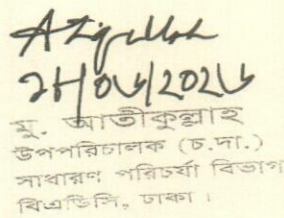 ২৮/০৬/২০২৬
মু. আতীকুল্লাহ
উপপরিচালক (চ.দা.)
সাধারণ পরিচর্যা বিভাগ
বিএডিসি, ঢাকা।